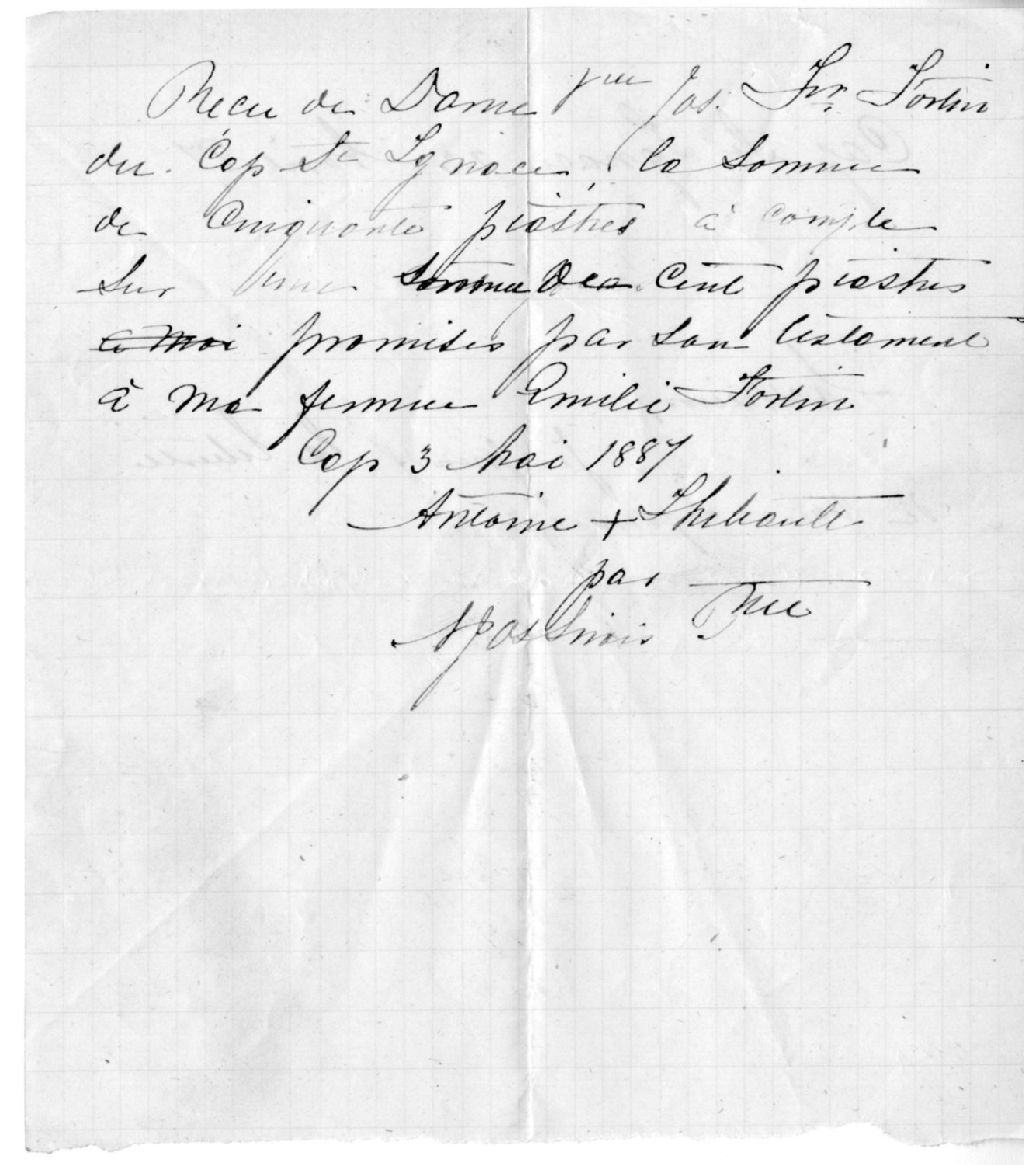 Recu de Dame Vve Jos. Frs. Fortin
du Cap St Ignace, la Somme
de Cinquante piastres à compte
sur une somme de Cent piastres
a moi promises par son testament
à ma femme Emilie Fortin
Cap 3 Mai 1887
Antoine + Thibault
par